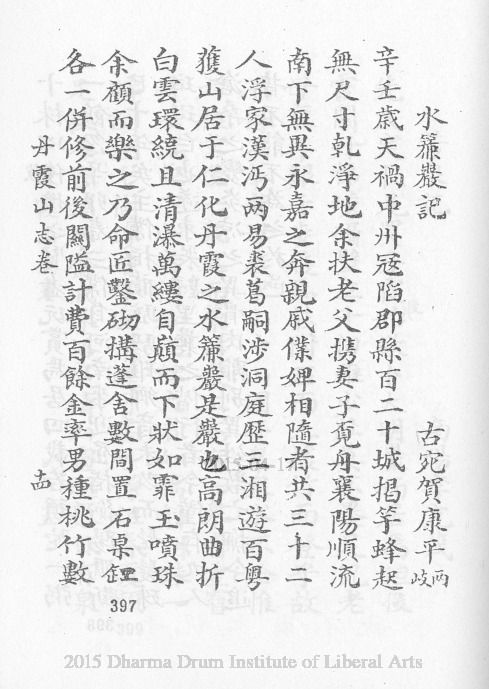 水簾巖記
古宛賀康平兩岐
辛壬歲天禍中州寇陷郡縣百二十城揭竿蜂起
無尺寸乹淨地余扶老父攜妻子覔舟襄陽順流
南下無異永嘉之奔親戚僕婢相隨者共三十二
人浮家漢沔两易裘葛嗣涉洞庭歷三湘遊百粵
獲山居于仁化丹霞之水簾巖是巖也高朗曲折
白雲環繞且清瀑萬縷自巔而下狀如霏玉噴珠
余顧而樂之乃命匠鑿砌搆蓬舍數間置石桌
各一併修前後關隘計費百餘金率男種桃竹數
丹霞山志卷
397
2015 Dharma Drum Institute of Liberal Arts